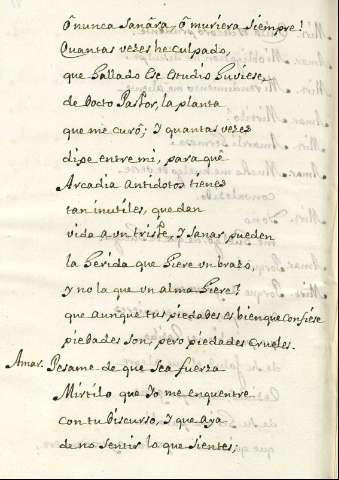 Ô nunca sanâra, ô muriera siempre!
Quantas vezes he culpado,
que hallado ese estudio huviese
de docto Pastor, la planta
que me curô; I quantas vezes
dixe entre mi, para quê
Arcadia antidotos tienes
tan inutiles, que dan
vida a un triste, I sanar pueden
la herida que hiere un brazo,
y no la que un alma hiere?
que aunque tus piedades es bien que confiese
piedades son, pero piedades crueles.
Amar. Pesame de que sea fuerza
Mirtilo que Io me enquentre
con tu discurso, I que aya
de no sentir lo que sientes;